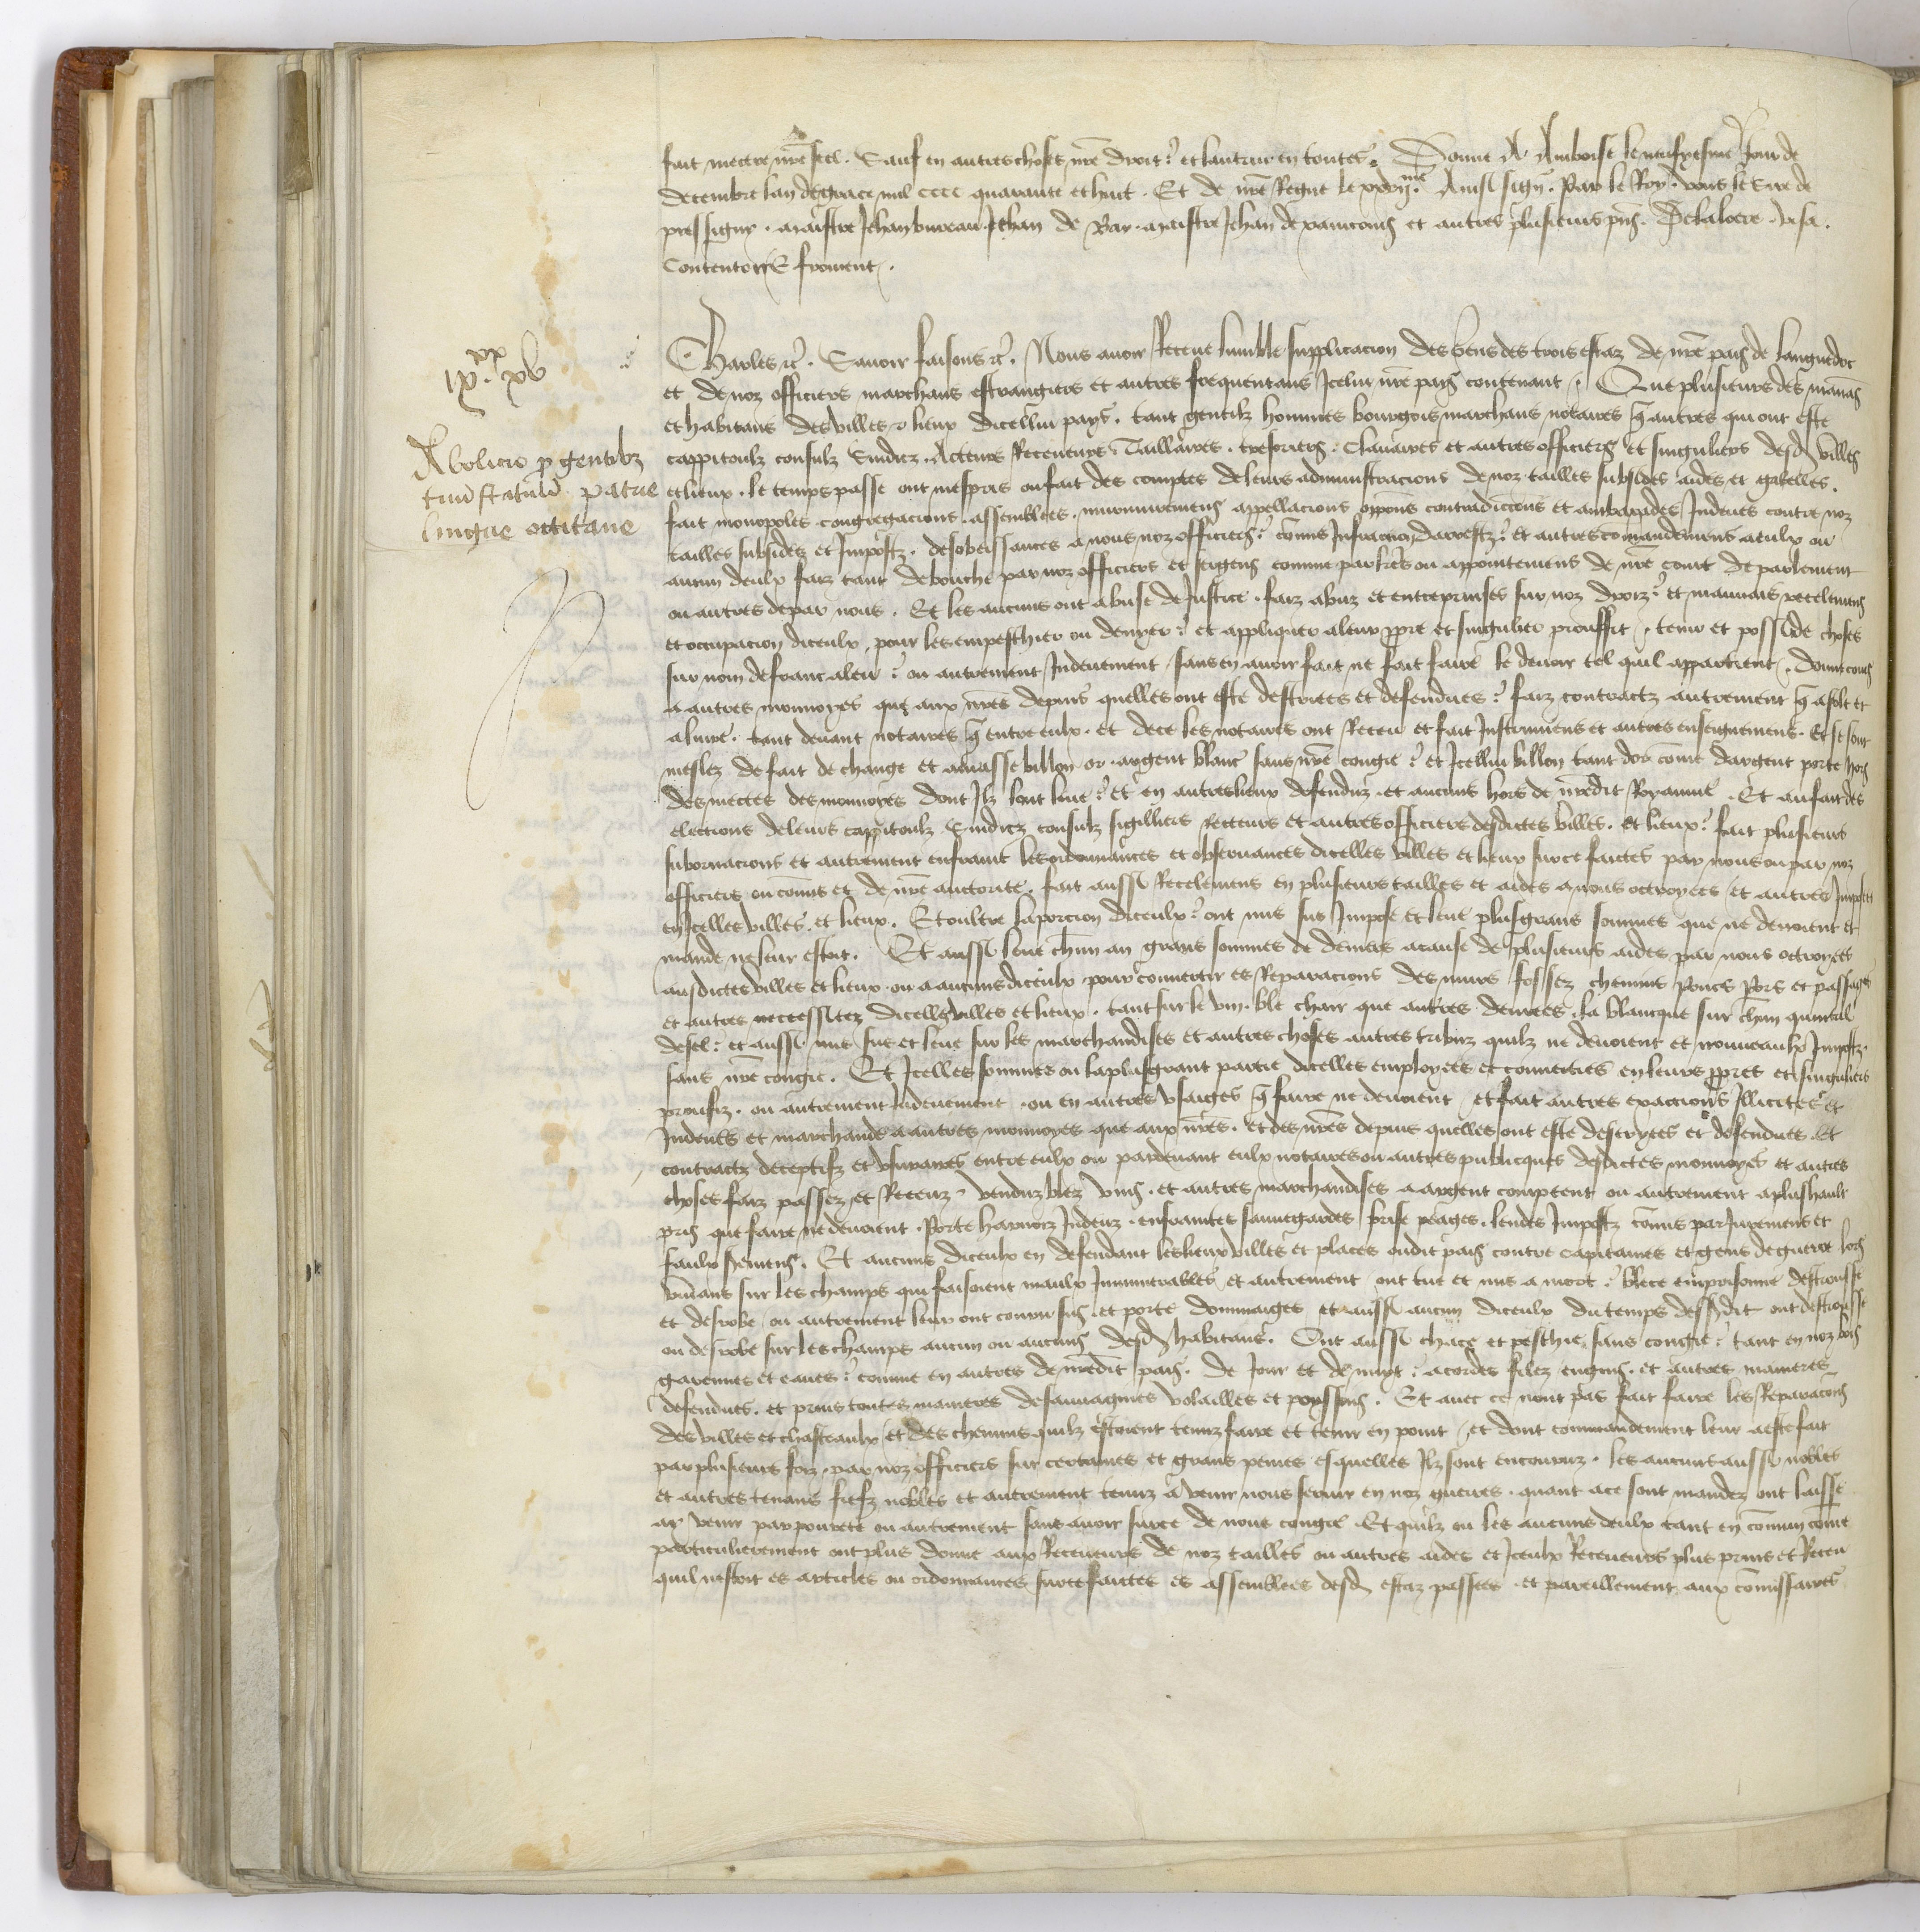 fait mectre nre seel. Sauf en autres choses nre droit et lautruy en toutes. Donne A Amboise le neufyesme Jour de
decembre lan de grace mil cccc quarante et huit. Et de nre Regne le xxvijme. Ainsi signe. Par le Roy. vous le sire de
pressigny. maistre Jehan bureau Jehan de Bar. maistre Jehan de et autres plusieurs pns. Delaloere. Visa.
Contentor E froment.
Charles etc. Savoir faisons etc. Nous avoir Receue lumble supplicacion des gens des trois estaz de nre pais de Languedoc
ixxx xv
Abolicio p gentibz
trium statuum patrie
lingue occitane
et de noz officiers marchans estrangiers et autres frequentans Icelui nre pays contenant. Que plusieurs des manas
et habitans des villes et lieux dicellui pays. tant gentilz hommes bourgois marchans notaires q autres qui ont este
cappitoulz consulz Sindicz. Acteurs Receveurs Taillaires. tresoriers. Clavaires et autres officiers et singuliers desd villes
et lieux. le temps passe ont mespris ou fait des comptes de leurs administracions de noz tailles subsides aides et gabelles.
fait monopoles congregacions. assemblees. murmuremens appellacions oppons contradictions et ambaxades Indeues contre noz
tailles subsides et Impostz. desobeissances a nous noz officiers. comis Infraction darrestz et autres comandemens a eulx ou
aucun deulx faiz tant de bouche par noz officiers et sergens comme par lres ou appointemens de nre court de parlement
ou autres depar nous. Et les aucuns ont abuse de Justice. faiz abuz et entreprinses sur noz droiz et mauvais recelemens
et occupacion diceulx, pour les empeschier ou denyer et appliquer a leur ppre et singulier prouffit. tenu et posside choses
sur nom de franc aleu ou autrement Indeuement sans en avoir fait ne fait faire le devoir tel quil appartient. donne cours
a autres monnoyes que aux nres depuis quelles ont este descriees et defendues faiz contractz autrement q a solt et
a livre. tant devant notaires q entre eulx. et de ce les notaires ont Receu et fait Instrumens et autres enseignemens. Et se sont
meslez de fait de change et billon or. argent blanc sans nre congie et Icellui billon tant dor come dargent porte hors
des mectes des monnoyes dont Ilz sont leue et en autres lieux defenduz. et aucuns hors de nredit Royaume. Et au fait des
elections de leurs cappitoulz Sindicz consulz sigilliers Recteurs et autres officiers desdictes villes. et lieux fait plusieurs
subornacions et autrement enfraint les ordonnances et observances dicelles villes et lieux sur ce faictes par nous ou par noz
officiers ou comis et de nre auctorite. fait aussi Recelemens en plusieurs tailles et aides a nous octroyees et autres Impostz
en Icelles villes et lieux. Et oultre la porcion diceulx ont mis sus Impose et leue plus grans sommes que ne devoient et
mande ne leur estoit. Et aussi leue chun an grans sommes de deniers a cause de plusieurs aides par nous octroyees
ausdictes villes et lieux ou a aucuns diceulx pour convertir es Reparacions des murs fossez chemins Pons Pors et passages
et autres necessitez dicelles villes et lieux. tant sur le vin ble chair que autres denrees. la blancque sur chun quintal
de sel et aussi mis sus et leue sur les marchandises et autres choses autres tribuz quilz ne devoient et nouveaulx Impostz.
sans nre congie. Et Icelles sommes ou la plus grant partie dicelles employees et converties en leurs ppres et singuliers
proufiz. ou autrement Indeuement. ou en autres usaiges q faire ne devoient et fait autres exactions Illicites et
Indeues et marchande a autres monnoyes que aux nres. et des nres depuis quelles ont este descryees et defendues. Et
contractz deceptifz et usuraires entre eulx ou pardevant eulx notaires ou autres publicques desdictes monnoyes et autres
choses faiz passez et Receuz. venduz blez vins. et autres marchandises a argent comptent ou autrement a plus hault
pris que faire ne devoient. porte harnoiz Indeuz. enfraintes sauvegardes prise peages. leudes Impostz comis par Juremens et
faulx seremens. Et aucuns diceulx en defendant les lieux villes et places oudit pais contre cappitaines et gens de guerre lors
vivans sur les champs qui faisoient maulx Innumerables et autrement ont tue et mis a mort blece emprisonne destrousse
et desrobe ou autrement leur ont couru sus et porte dommaiges et aussi aucun diceulx du temps dessusdit ont destrousse
ou desrobe sur les champs aucun ou aucuns desd habitans. Ont aussi chace et peschie sans congie tant en noz bois
garennes et eaues comme en autres de nredit pais. de Jour et de nuyt a cordes filez engins. et autres manieres
defendues. et prins toutes manieres de sauvagines volailles et poyssons. Et avec ce nont pas fait faire les Reparacons
des villes et chasteaulx et des chemins quilz estoient tenuz faire et tenir en point et dont commandement leur a este fait
par plusieurs foiz par noz officiers sur certaines et grans peines esquelles Ilz sont encouruz. les aucuns aussi nobles
et autres tenans fiefz nobles et autrement tenuz a venir nous servir en noz guerres. quant a ce sont mandez ont laisse
a y venir par povrete ou autrement sans avoir sur ce de nous congie. Et quilz ou les aucuns deulx tant en comun come
particulierement ont plus donne aux Receveurs de noz tailles ou autres aides et Iceulx Receveurs plus prins et Receu
quil nestoit es articles ou ordonnances sur ce faictes es assemblees desd estaz passees. et pareillement aux comissaires